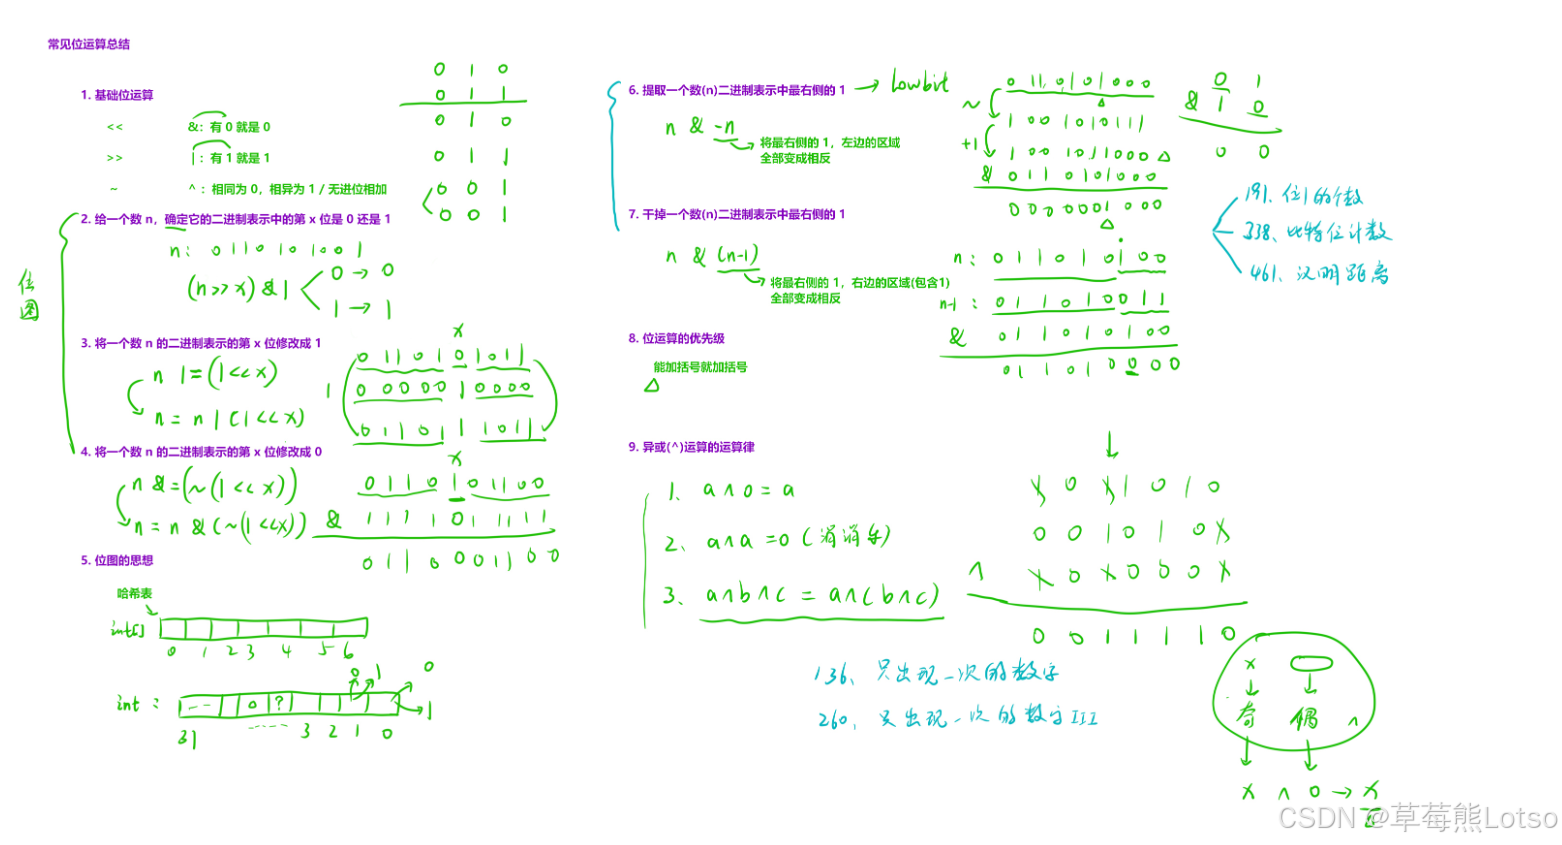 常见位运算总结
1. 基础位运算
<< &: 有 0 就是 0
>> |: 有 1 就是 1
~ ^: 相同为 0，相异为 1 / 无进位相加
0 1 0
0 1 1
0 1 0
0 1 1
0 0 1
0 0 1
2. 给一个数 n，确定它的二进制表示中的第 x 位是 0 还是 1
n: 0 1 1 0 1 0 1 0 0 1
(n>>x) & 1
0 → 0
1 → 1
位图
3. 将一个数 n 的二进制表示的第 x 位修改成 1
n |= (1<<x)
n = n | (1<<x)
x
0 1 1 0 1 0 1 0 1 1
| 0 0 0 0 0 1 0 0 0 0
0 1 1 0 1 1 1 0 1 1
4. 将一个数 n 的二进制表示的第 x 位修改成 0
n &= (~(1<<x))
n = n & (~(1<<x))
x
0 1 1 0 1 0 1 1 0 0
& 1 1 1 1 0 1 1 1 1
0 1 1 0 0 0 1 1 0 0
5. 位图的思想
哈希表
int[]
0 1 2 3 4 5 6
int :
0 ?
0 1
0
1
31 3 2 1 0
6. 提取一个数(n)二进制表示中最右侧的 1 → lowbit
n & -n
将最右侧的 1，左边的区域
全部变成相反
0 1 1 0 1 0 1 0 0 0
~ 1 0 0 1 0 1 0 1 1 1
+1 1 0 0 1 0 1 1 0 0 0
& 0 1 1 0 1 0 1 0 0 0
0 0 0 0 0 0 1 0 0 0
0 1
& 1 0
0 0
7. 干掉一个数(n)二进制表示中最右侧的 1
n & (n-1)
将最右侧的 1，右边的区域(包含1)
全部变成相反
n: 0 1 1 0 1 0 1 0 0
n-1: 0 1 1 0 1 0 0 1 1
& 0 1 1 0 1 0 1 0 0
0 1 1 0 1 0 0 0 0
191、位1的个数
338、比特位计数
461、汉明距离
8. 位运算的优先级
能加括号就加括号
9. 异或(^)运算的运算律
1、a ^ 0 = a
2、a ^ a = 0 (消消乐)
3、a ^ b ^ c = a ^ (b ^ c)
0 0 1 0 1 0
^
0 0 1 1 1 1 0
136、只出现一次的数字
260、只出现一次的数字III
x
奇 偶 ^
x ^ 0 → x
CSDN @草莓熊Lotso